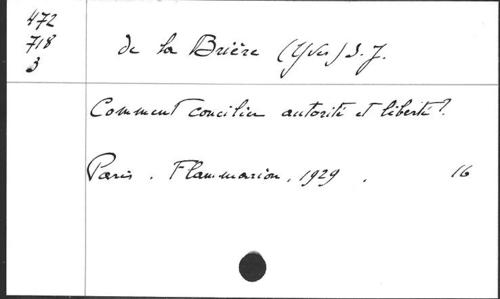 472
718
3
de la Brière (Yves) S. J.
Comment concilier autorité et liberté?
Paris. Flammarion, 1929. 16